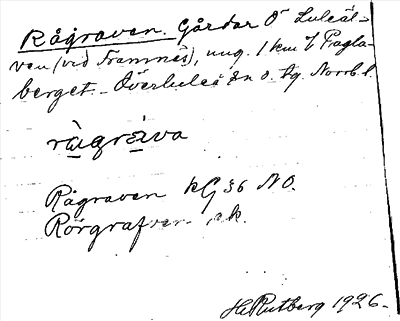 Rågraven. Gårdar Ö Luleäl-
ven (vid Framnäs), ung. 1 km
berget. Överluleå sn o. tg. Norrb. l.
rågrava
Rågraven KG 36 NO.
Rörgrafven ek.
H. Rutberg 1926.